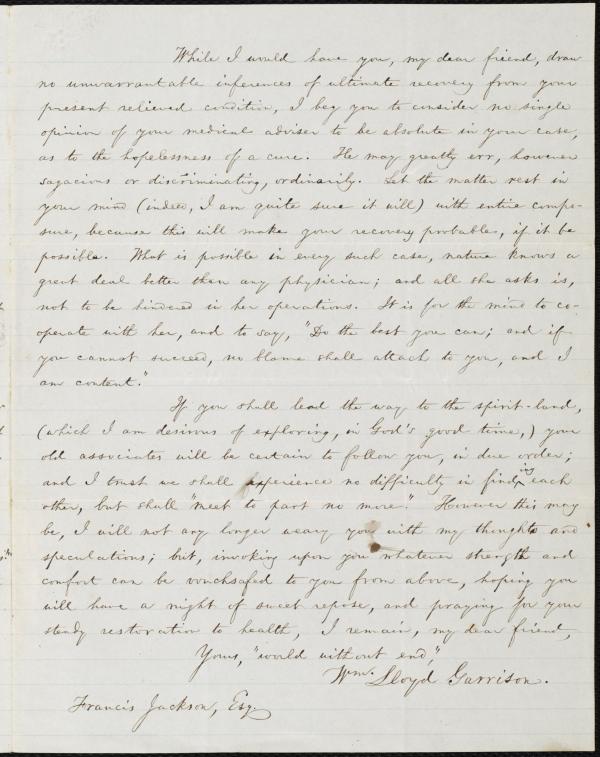 While I would have you, my dear friend, draw
no unwarrantable inferences of ultimate recovery from your
present relieved condition, I beg you to consider no single
opinion of your medical adviser to be absolute in your case,
as to the hopelessness of a cure. He may greatly err, however
sagacious or discriminating, ordinarily. Let the matter rest in
your mind (indeed, I am quite sure it will) with entire compo-
sure, because this will make your recovery probable, if it be
possible. What is possible in every such case, nature knows a
great deal better than any physician; and all she asks is,
not to be hindered in her operations. It is for the mind to co-
operate with her, and to say, "Do the best you can; and if
you cannot succeed, no blame shall attach to you, and I
am content."
If you shall lead the way to the spirit-land,
(which I am desirous of exploring, in God's good time,) your
old associates will be certain to follow you, in due order;
and I trust we shall experience no difficulty in finding each
other, but shall "meet to part no more." However this may
be, I will not any longer weary you with my thoughts and
speculations; but, invoking upon you whatever strength and
comfort can be vouchsafed to you from above, hoping you
will have a night of sweet repose, and praying for your
steady restoration to health, I remain, my dear friend,
Yours, "world without end,"
Wm. Lloyd Garrison.
Francis Jackson, Esq.